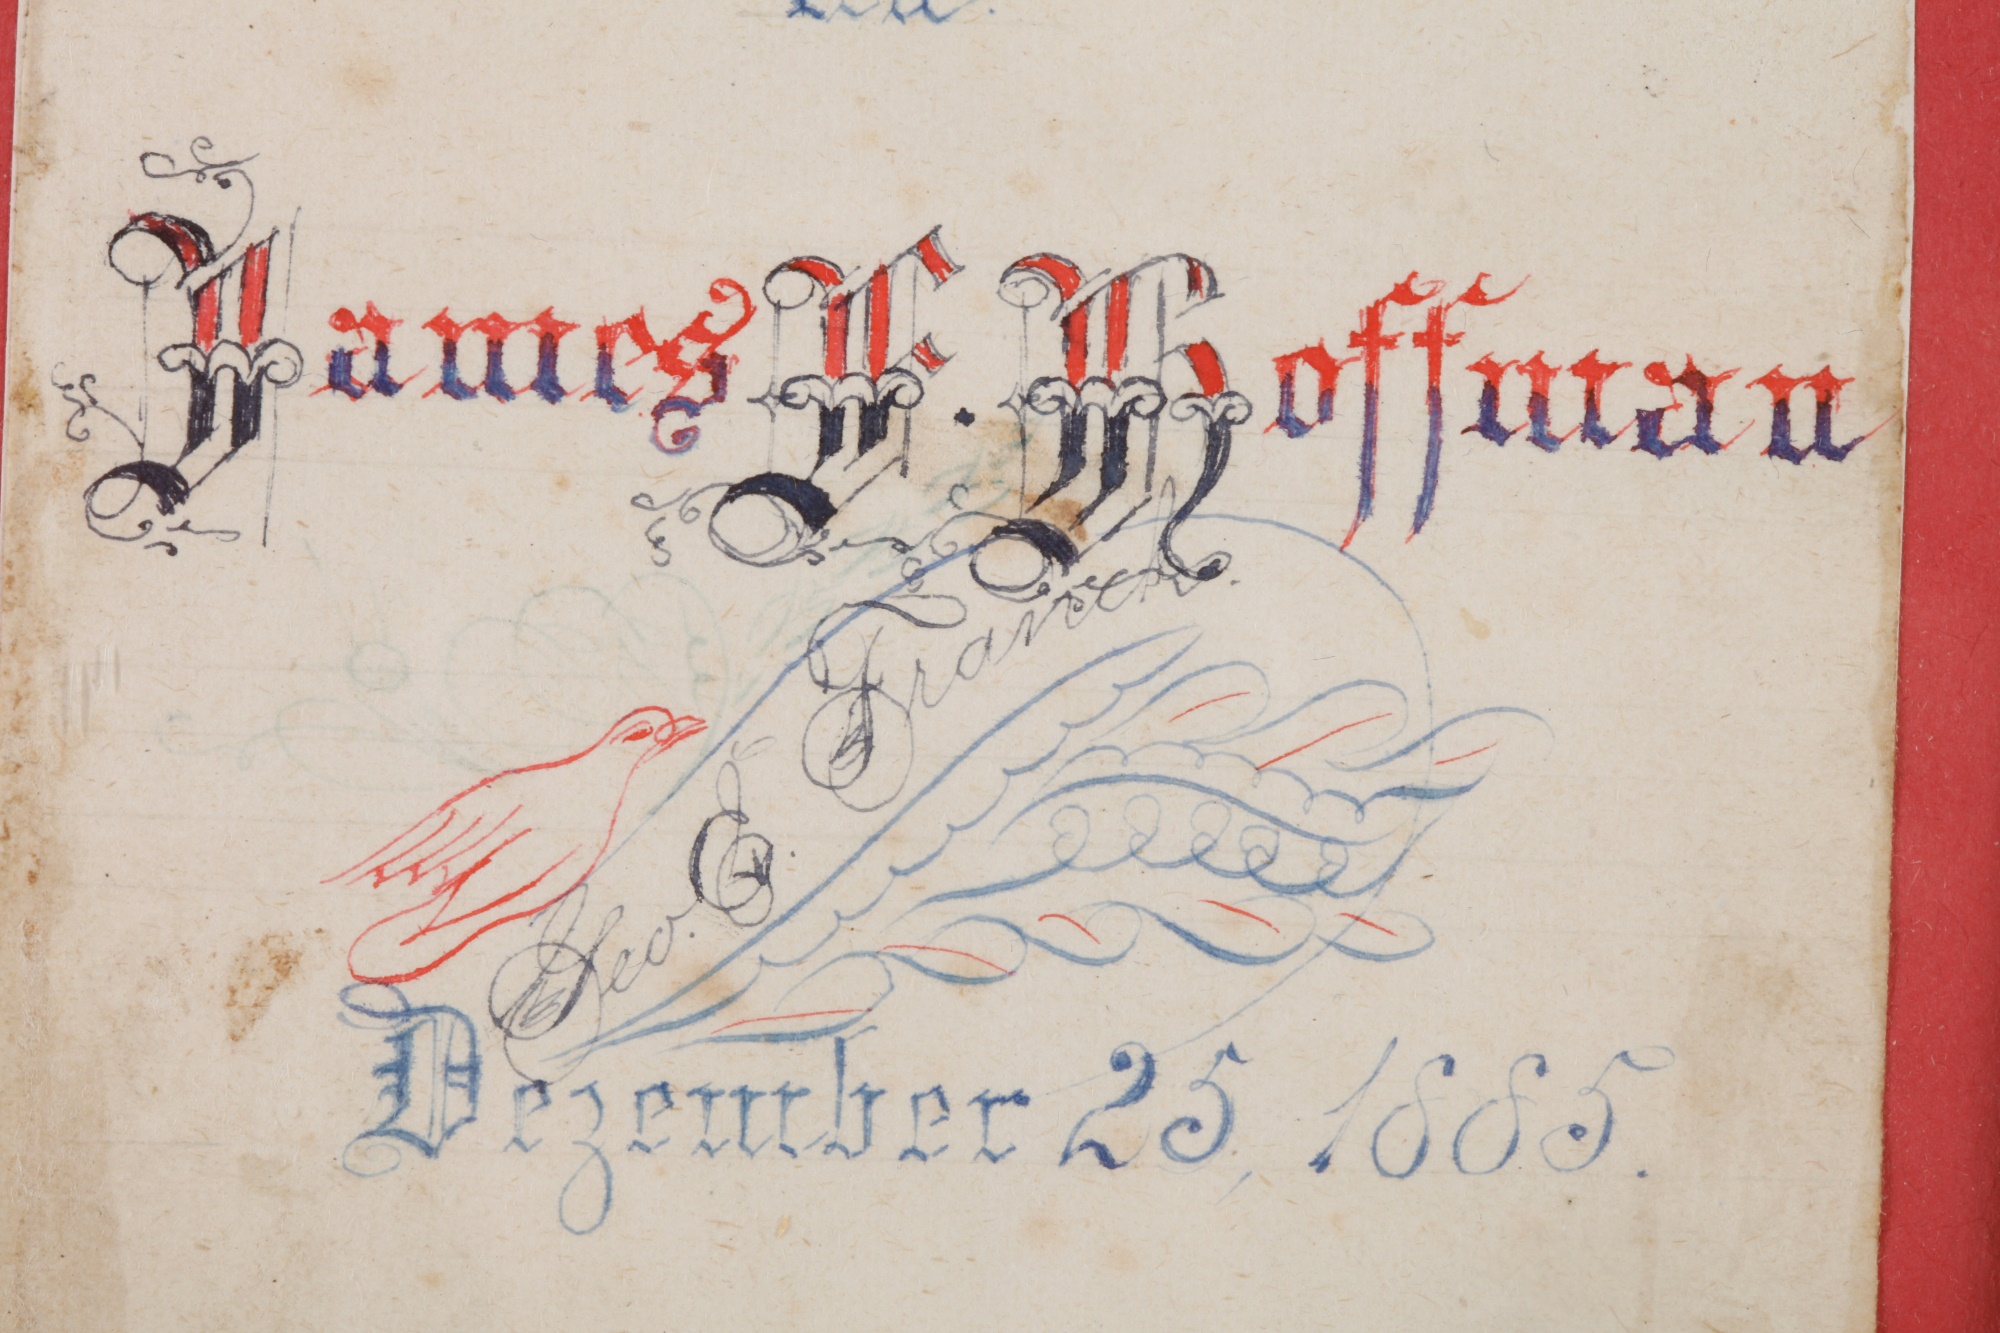 James F. Hoffman
Geo. E. Franch.
Dezember 25, 1885.